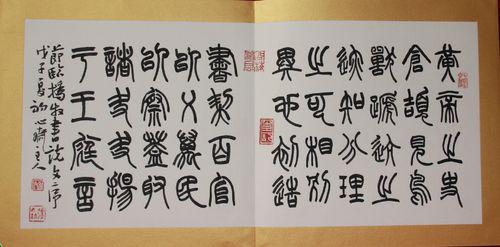 黃帝之史
倉頡見鳥
獸蹏迒之
迹知分理
之可相別
異也初造
書契百官
以乂萬民
以察蓋取
諸夬夬揚
于王庭言
節臨楊書說文序
戊子夏心齋主人